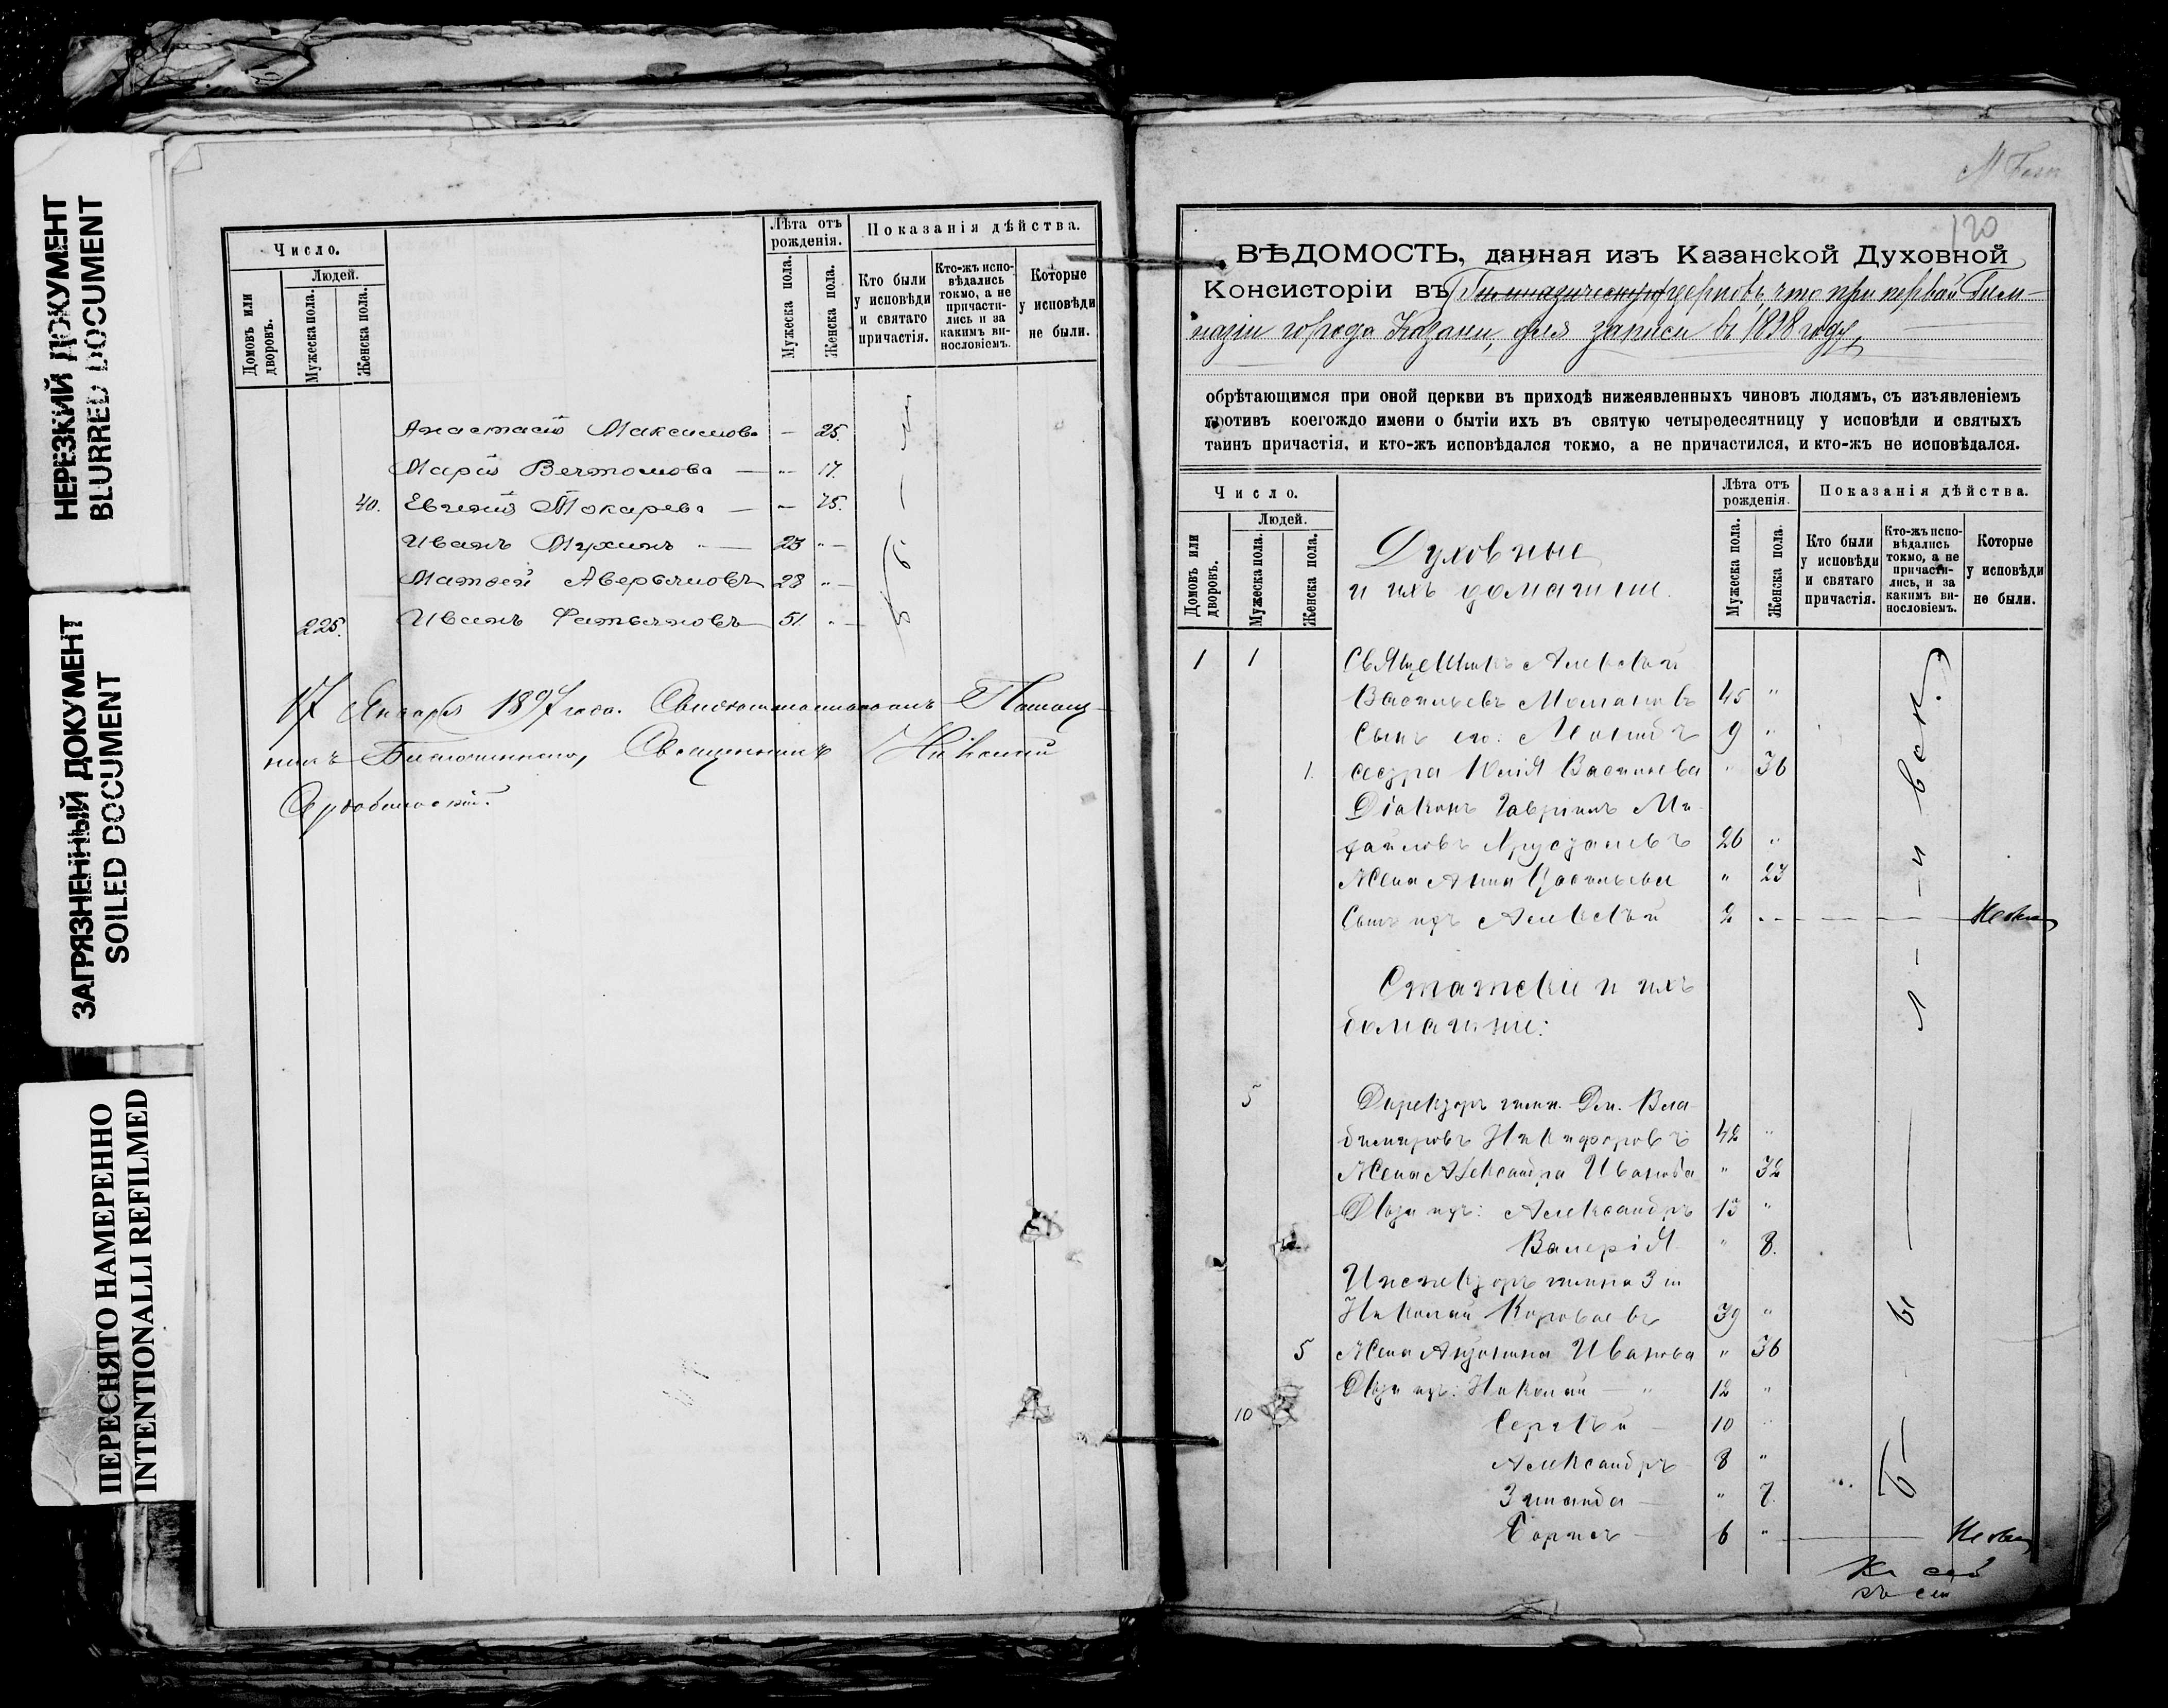 НЕРЕЗКИЙ ДОКУМЕНТ
BLURRED DOCUMENT
ЗАГРЯЗНЕННЫЙ ДОКУМЕНТ
SOILED DOCUMENT
ПЕРЕСНЯТО НАМЕРЕННО
INTENTIONALLI REFILMED
Число.
Людей.
Домовъ или дворовъ.
Мужеска пола.
Женска пола.
Лѣта отъ рожденія.
Мужеска пола.
Женска пола.
Показанія дѣйства.
Кто были у исповѣди и святаго причастія.
Кто-жъ исповѣдались токмо, а не причастились и за какимъ винословіемъ.
Которые у исповѣди не были.
Анастасія Максимова — 25.
Марія Вечтомова — 17.
40. Евгенія Токарева — 75.
Иванъ Мухинъ 23
Матвей Аверьяновъ 28
225. Иванъ Фатьяновъ 51.
17 Января 1897 года.
Священникъ Николай
120
ВѢДОМОСТЬ, данная изъ Казанской Духовной
Консисторіи въ Гимназическую церковь, что при первой Гим-
назіи города Казани, для записи въ 1898 году,
обрѣтающимся при оной церкви въ приходѣ нижеявленныхъ чиновъ людямъ, съ изъявленіемъ
противъ коегождо имени о бытіи ихъ въ святую четыредесятницу у исповѣди и святыхъ
таинъ причастія, и кто-жъ исповѣдался токмо, а не причастился, и кто-жъ не исповѣдался.
Число.
Людей.
Домовъ или дворовъ.
Мужеска пола.
Женска пола.
Лѣта отъ рожденія.
Мужеска пола.
Женска пола
Показанія дѣйства.
Кто были у исповѣди и святаго причастія.
Кто-жъ исповѣдались токмо, а не причастились, и за какимъ винословіемъ.
Которые у исповѣди не были.
Духовные
и ихъ домашніе.
1 1 Священникъ Алексѣй
Васильевъ 45 "
Сынъ его: Леонидъ 9 "
1. сестра Юлія Васильева " 36
Діаконъ Гавріилъ Ми-
хайловъ 26 "
Жена Анна Васильева " 23
Сынъ ихъ Алексѣй 2
Статскіе и ихъ
домашніе:
5 Директоръ гимн. Вла-
диміровъ Никифоровъ 42 "
Жена Александра Иванова " 32
Дѣти ихъ: Александръ 13 "
Валерія " 8.
Инспекторъ гимназіи
Николай Короваевъ 39 "
5 Жена Антонина Иванова " 36
Дѣти ихъ: Николай 12 "
10 Сергѣй 10
Александръ 8 "
Зинаида " 7.
Борисъ 6 "